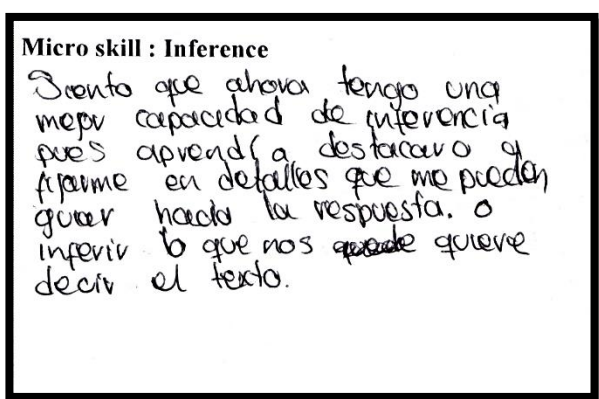 Micro skill : Inference
Siento que ahora tengo una
mejor capacidad de inferencia
pues aprendí a destacar o a
fijarme en detalles que me pueden
guiar hacia la respuesta. o
inferir lo que nos quiere
decir el texto.